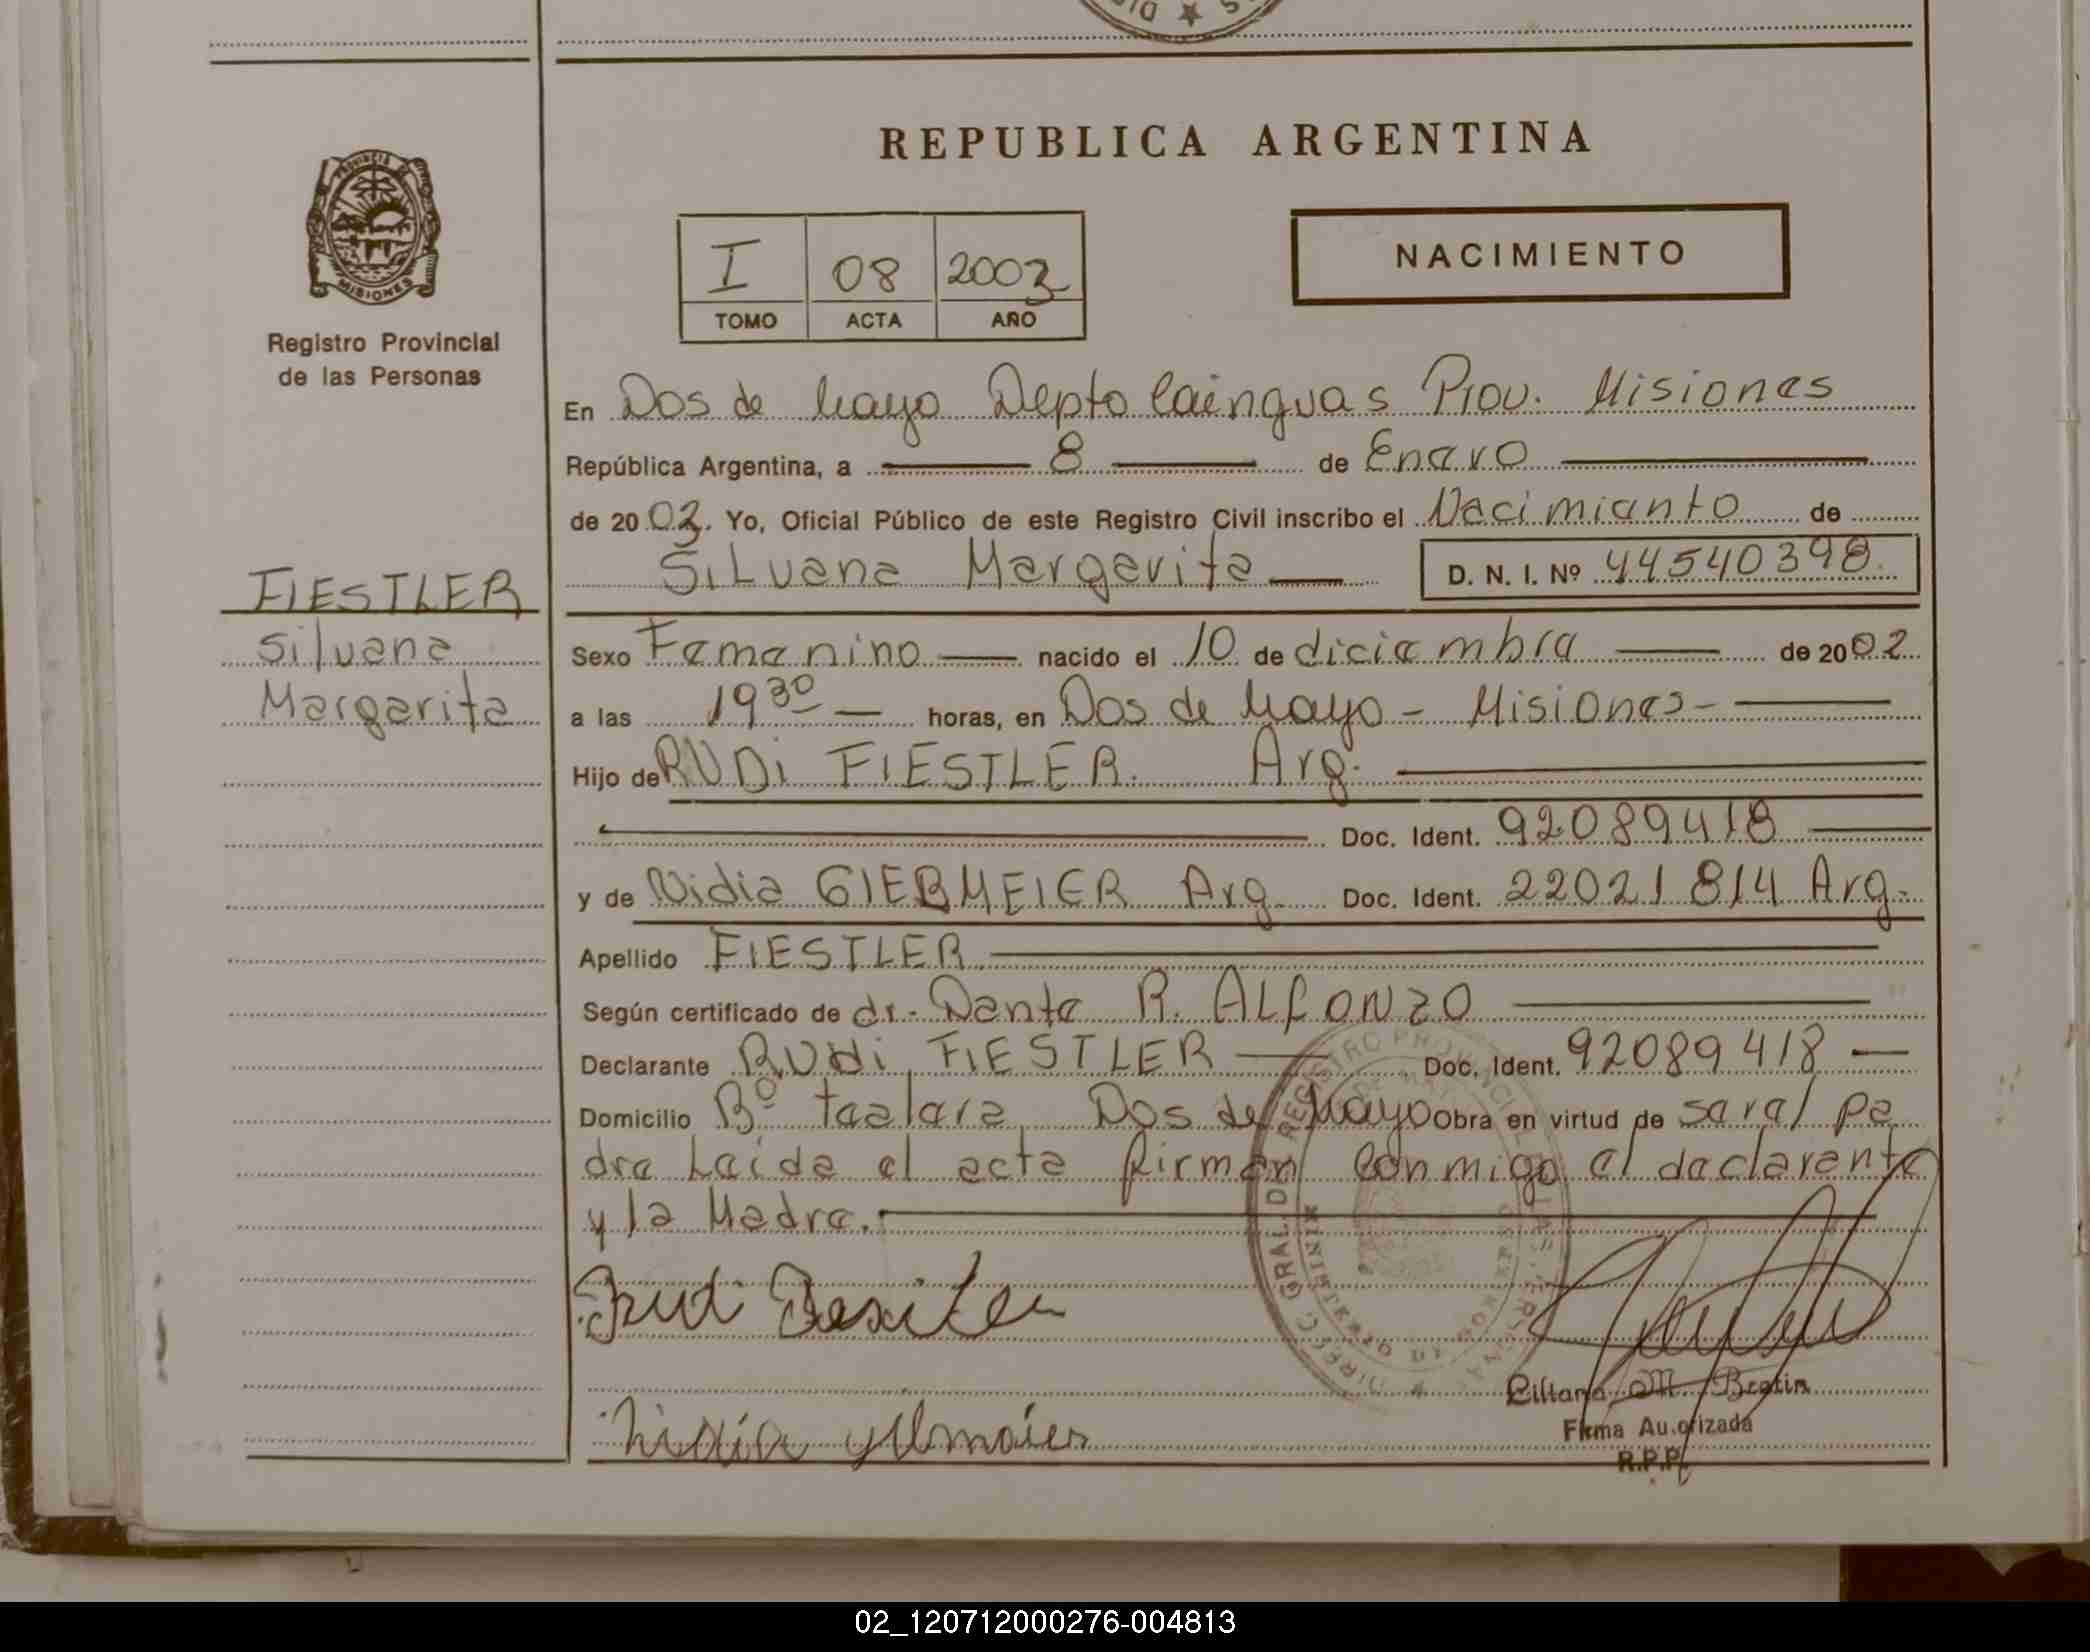 REPUBLICA ARGENTINA
NACIMIENTO
I 08 2003
TOMO ACTA AÑO
PROVINCIA DE MISIONES
Registro Provincial
de las Personas
En Dos de Mayo Depto Cainguas Prov. Misiones
República Argentina, a 8 de Enero
de 2003. Yo, Oficial Público de este Registro Civil inscribo el Nacimiento de
Silvana Margarita D. N. I. Nº 44540398
FIESTLER
Silvana
Margarita
Sexo Femenino nacido el 10 de diciembre de 2002
a las 19 30 horas, en Dos de Mayo - Misiones -
Hijo de RUDi FIESTLER. Arg.
Doc. Ident. 92089418
y de Nidia GIEBMEIER Arg. Doc. Ident. 22021814 Arg.
Apellido FIESTLER
Según certificado de dr. Dante R. ALFONZO
Declarante RUdi FIESTLER Doc. Ident. 92089418
Domicilio Bº Dos de Mayo Obra en virtud de ser el pa
dre Leída el acta firman conmigo el declarante
y la Madre.
DIREC. GRAL. DE REGISTRO PROVINCIAL
Liliana M. Bratin
Firma Autorizada
R.P.P.
02_120712000276-004813